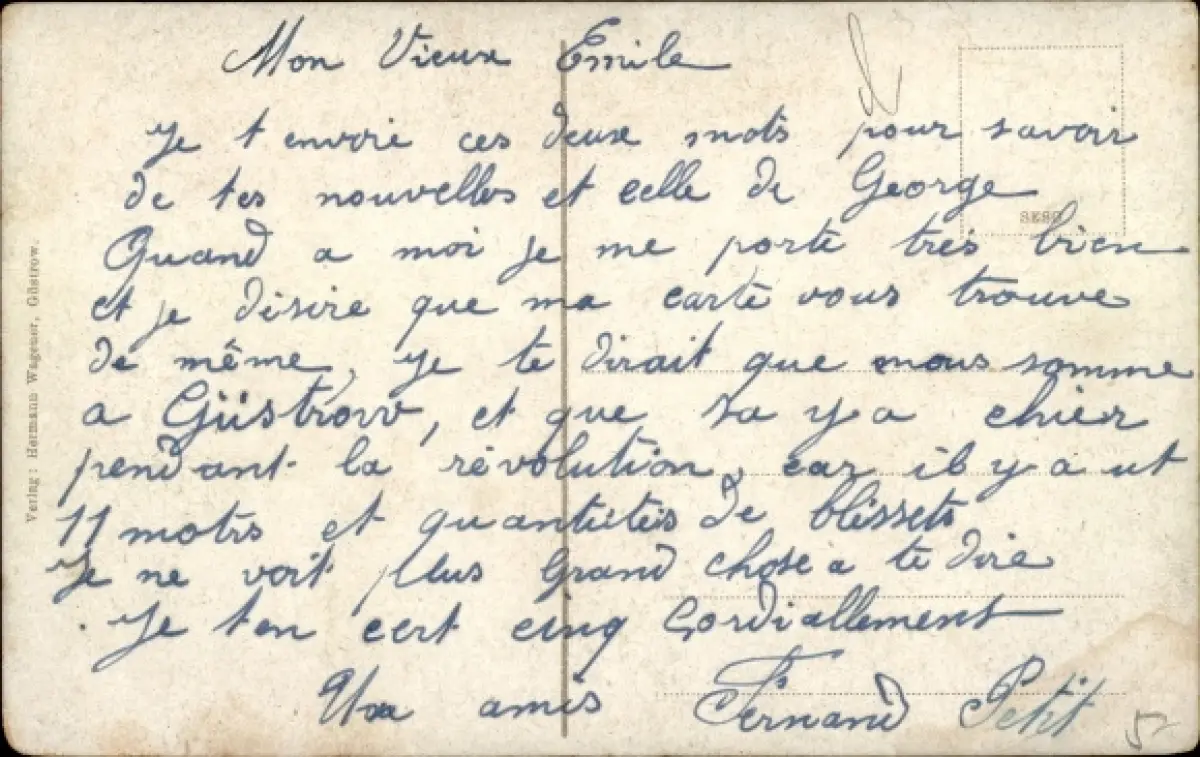 Mon Vieux Emile
Je t envoie ces deux mots pour savoir
de tes nouvelles et celle de George
Quand a moi je me porte très bien
et je désire que ma carte vous trouve
de même, Je te dirait que nous somme
a Güstrow, et que sa y a chier
pendant la révolution, car il y a ut
11 motrs et quantités de blessets
Je ne voit plus Grand chose a te dire
Je ten cert cinq Cordiallement
Un amis Fernand Petit
Verlag: Hermann Wagener, Güstrow.
52